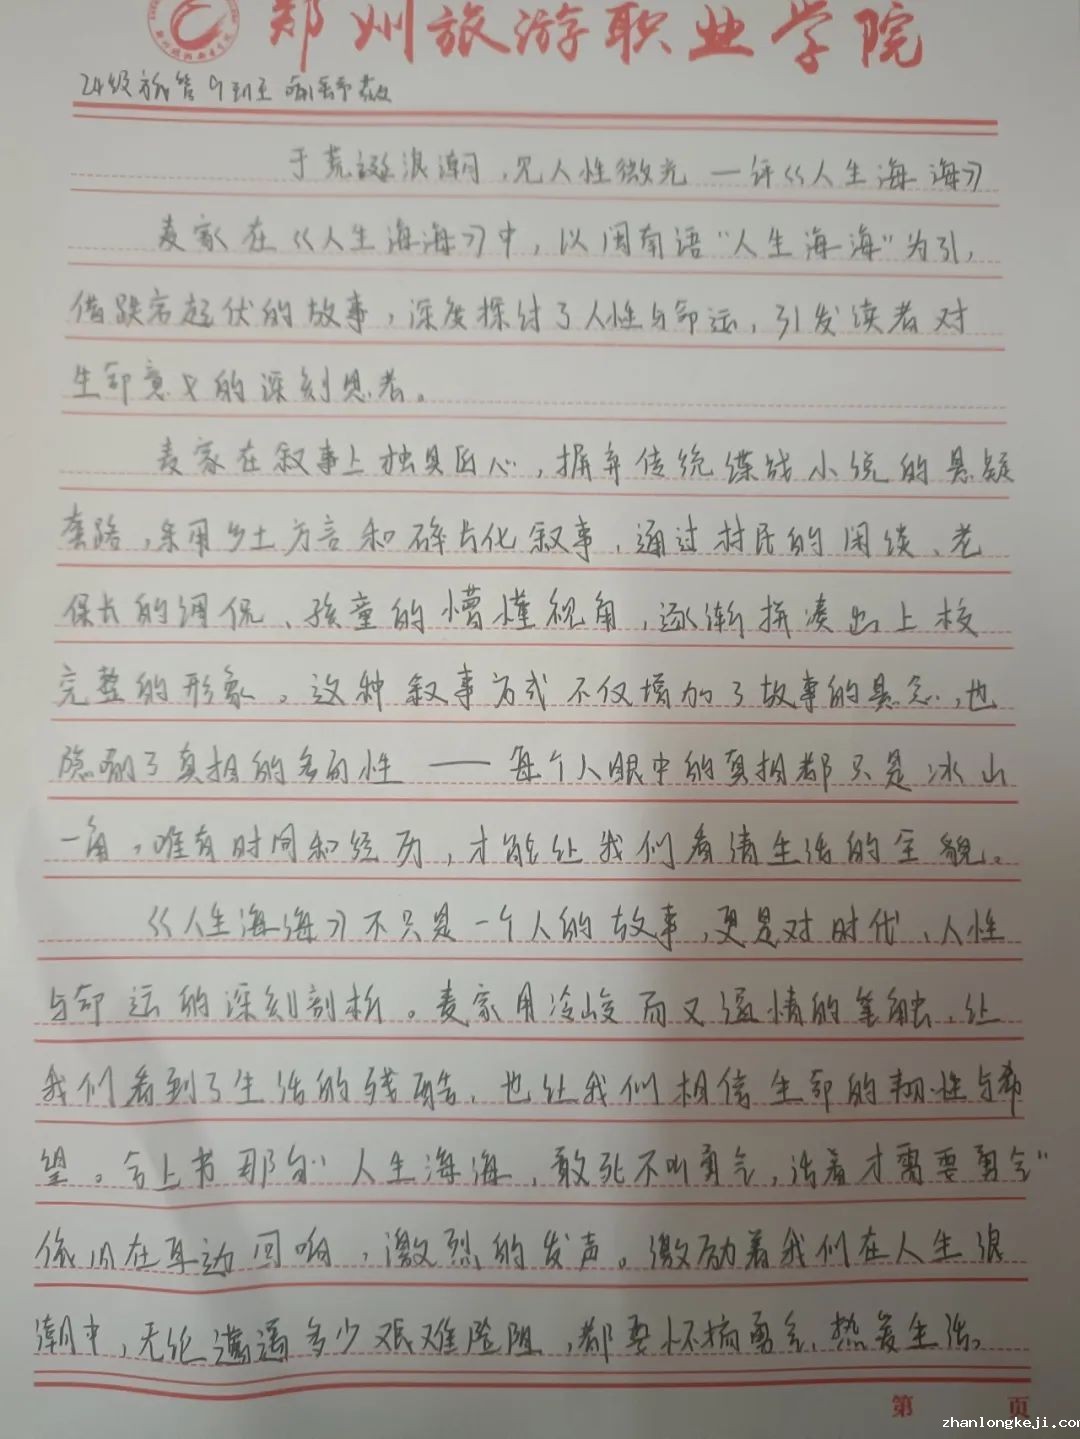 郑州旅游职业学院
24级旅管9班
于荒诞浪潮,见人性微光 — 评《人生海海》
麦家在《人生海海》中,以闽南语"人生海海"为引,
借跌宕起伏的故事,深度探讨了人性与命运,引发读者对
生命意义的深刻思考。
麦家在叙事上独具匠心,摒弃传统谍战小说的悬疑
套路,采用乡土方言和碎片化叙事,通过村民的闲谈、老
保长的调侃、孩童的懵懂视角,逐渐拼凑出上校
完整的形象。这种叙事方式不仅增加了故事的悬念,也
隐喻了真相的多面性 —— 每个人眼中的真相都只是冰山
一角,唯有时间和经历,才能让我们看清生活的全貌。
《人生海海》不只是一个人的故事,更是对时代、人性
与命运的深刻剖析。麦家用冷峻而又温情的笔触,让
我们看到了生活的残酷,也让我们相信生命的韧性与希
望。合上书那句"人生海海,敢死不叫勇气,活着才需要勇气"
依旧在耳边回响,激烈的发声。激励着我们在人生浪
潮中,无论遭遇多少艰难险阻,都要怀揣勇气,热爱生活。
第 页
zhanlongkeji.com